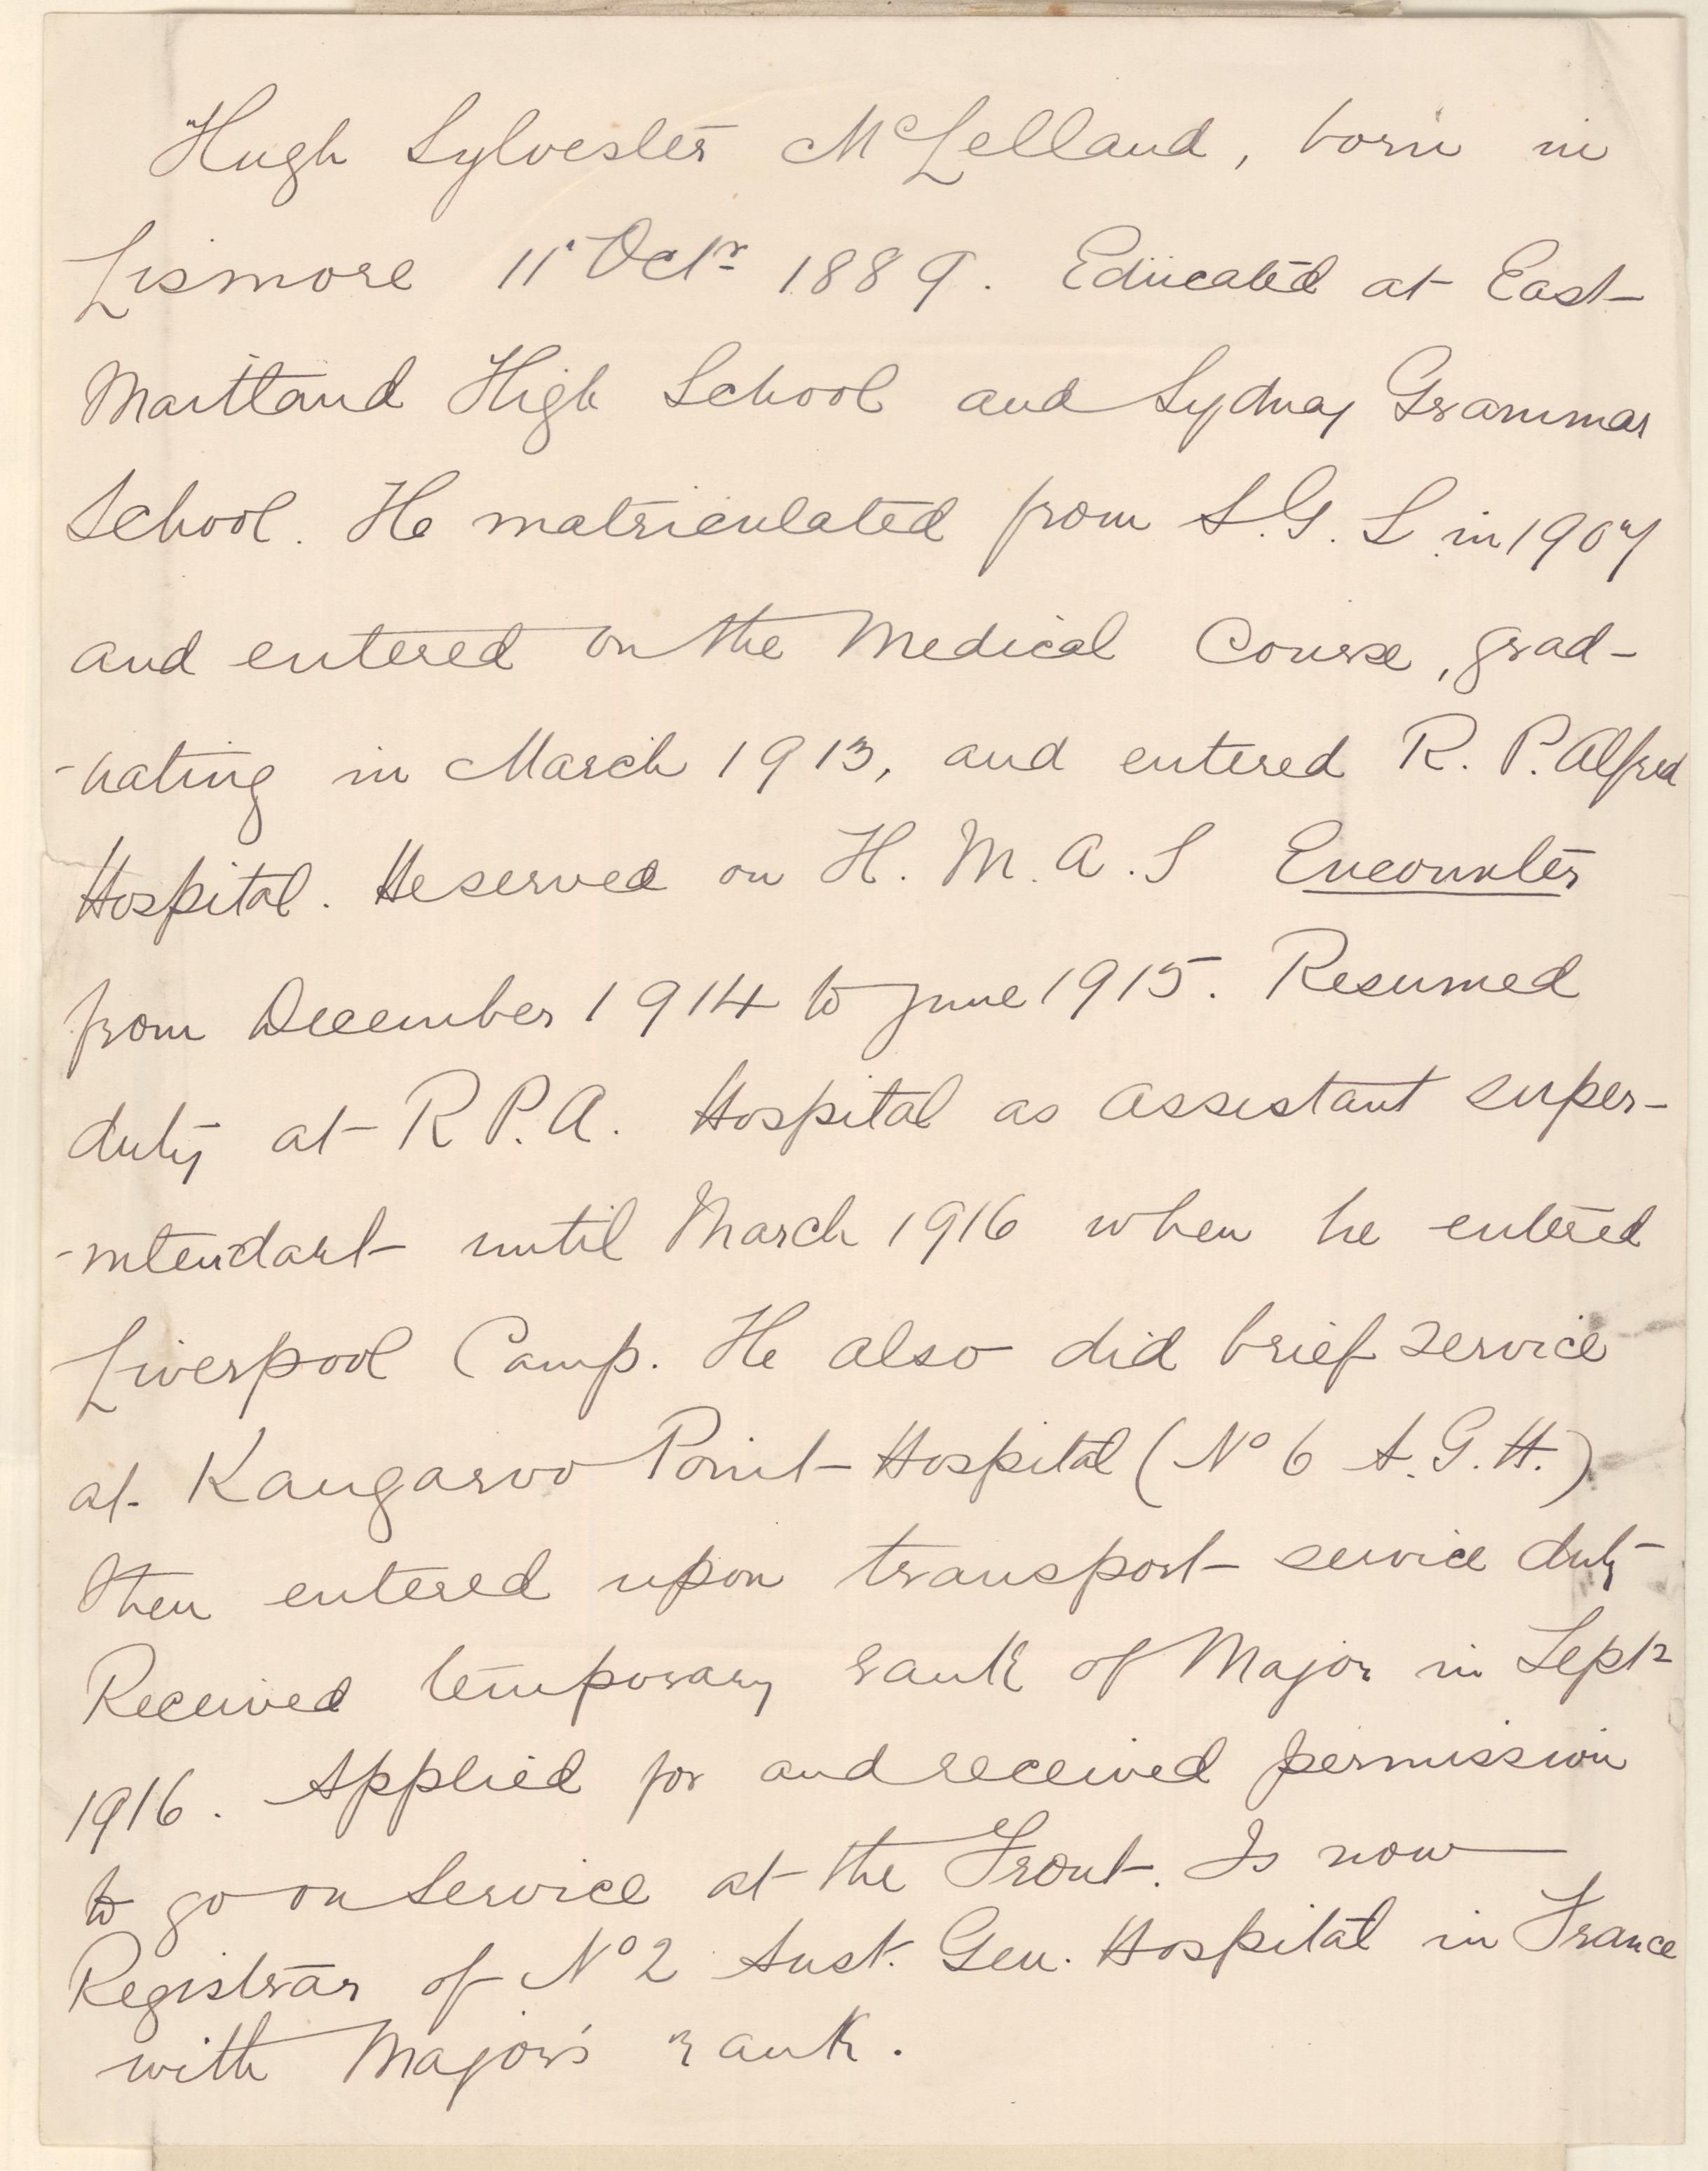 Hugh Sylvester McLelland, born in
Lismore 11 Octr 1889. Educated at East
Maitland High School and Sydney Grammar
School. He matriculated from S.G.S. in 1907
and entered on the Medical Course, grad-
-uating in March 1913, and entered R. P. Alfred
Hospital. He served on H.M.A.S Encounter
from December 1914 to June 1915. Resumed
duty at R P.A. Hospital as assistant super-
-intendant until March 1916 when he entered
Liverpool Camp. He also did brief service
at Kangaroo Point Hospital (No 6 A.G.H.)
then entered upon transport service duty
Received temporary rank of Major in Septr
1916. Applied for and received permission
to go on service at the Front. Is now
Registrar of No 2 Aust. Gen. Hospital in France
with Major's rank.